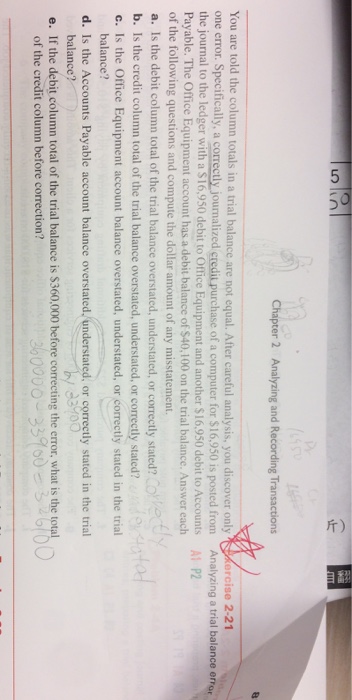 Chapter 2 Analyzing and Recording Transactions
Exercise 2-21
Analyzing a trial balance error
A1 P2
You are told the column totals in a trial balance are not equal. After careful analysis, you discover only
one error. Specifically, a correctly journalized credit purchase of a computer for $16,950 is posted from
the journal to the ledger with a $16,950 debit to Office Equipment and another $16,950 debit to Accounts
Payable. The Office Equipment account has a debit balance of $40,100 on the trial balance. Answer each
of the following questions and compute the dollar amount of any misstatement.
a. Is the debit column total of the trial balance overstated, understated, or correctly stated? correctly
b. Is the credit column total of the trial balance overstated, understated, or correctly stated?
c. Is the Office Equipment account balance overstated, understated, or correctly stated in the trial
balance?
d. Is the Accounts Payable account balance overstated, understated, or correctly stated in the trial
balance? by 33900
e. If the debit column total of the trial balance is $360,000 before correcting the error, what is the total
of the credit column before correction? 360000-33900=326100